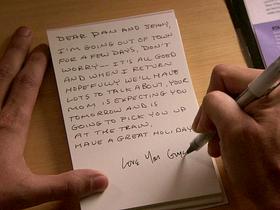 DEAR DAN AND JENNY,
I'M GOING OUT OF TOWN
FOR A FEW DAYS, DON'T
WORRY-- IT'S ALL GOOD
AND WHEN I RETURN
HOPEFULLY WE'LL HAVE
LOTS TO TALK ABOUT. YOUR
MOM IS EXPECTING YOU
TOMORROW AND IS
GOING TO PICK YOU UP
AT THE TRAIN.
HAVE A GREAT HOLIDAY
Love You Guys